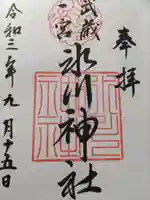 奉拝
武蔵
一宮
氷川神社
令和三年九月十五日